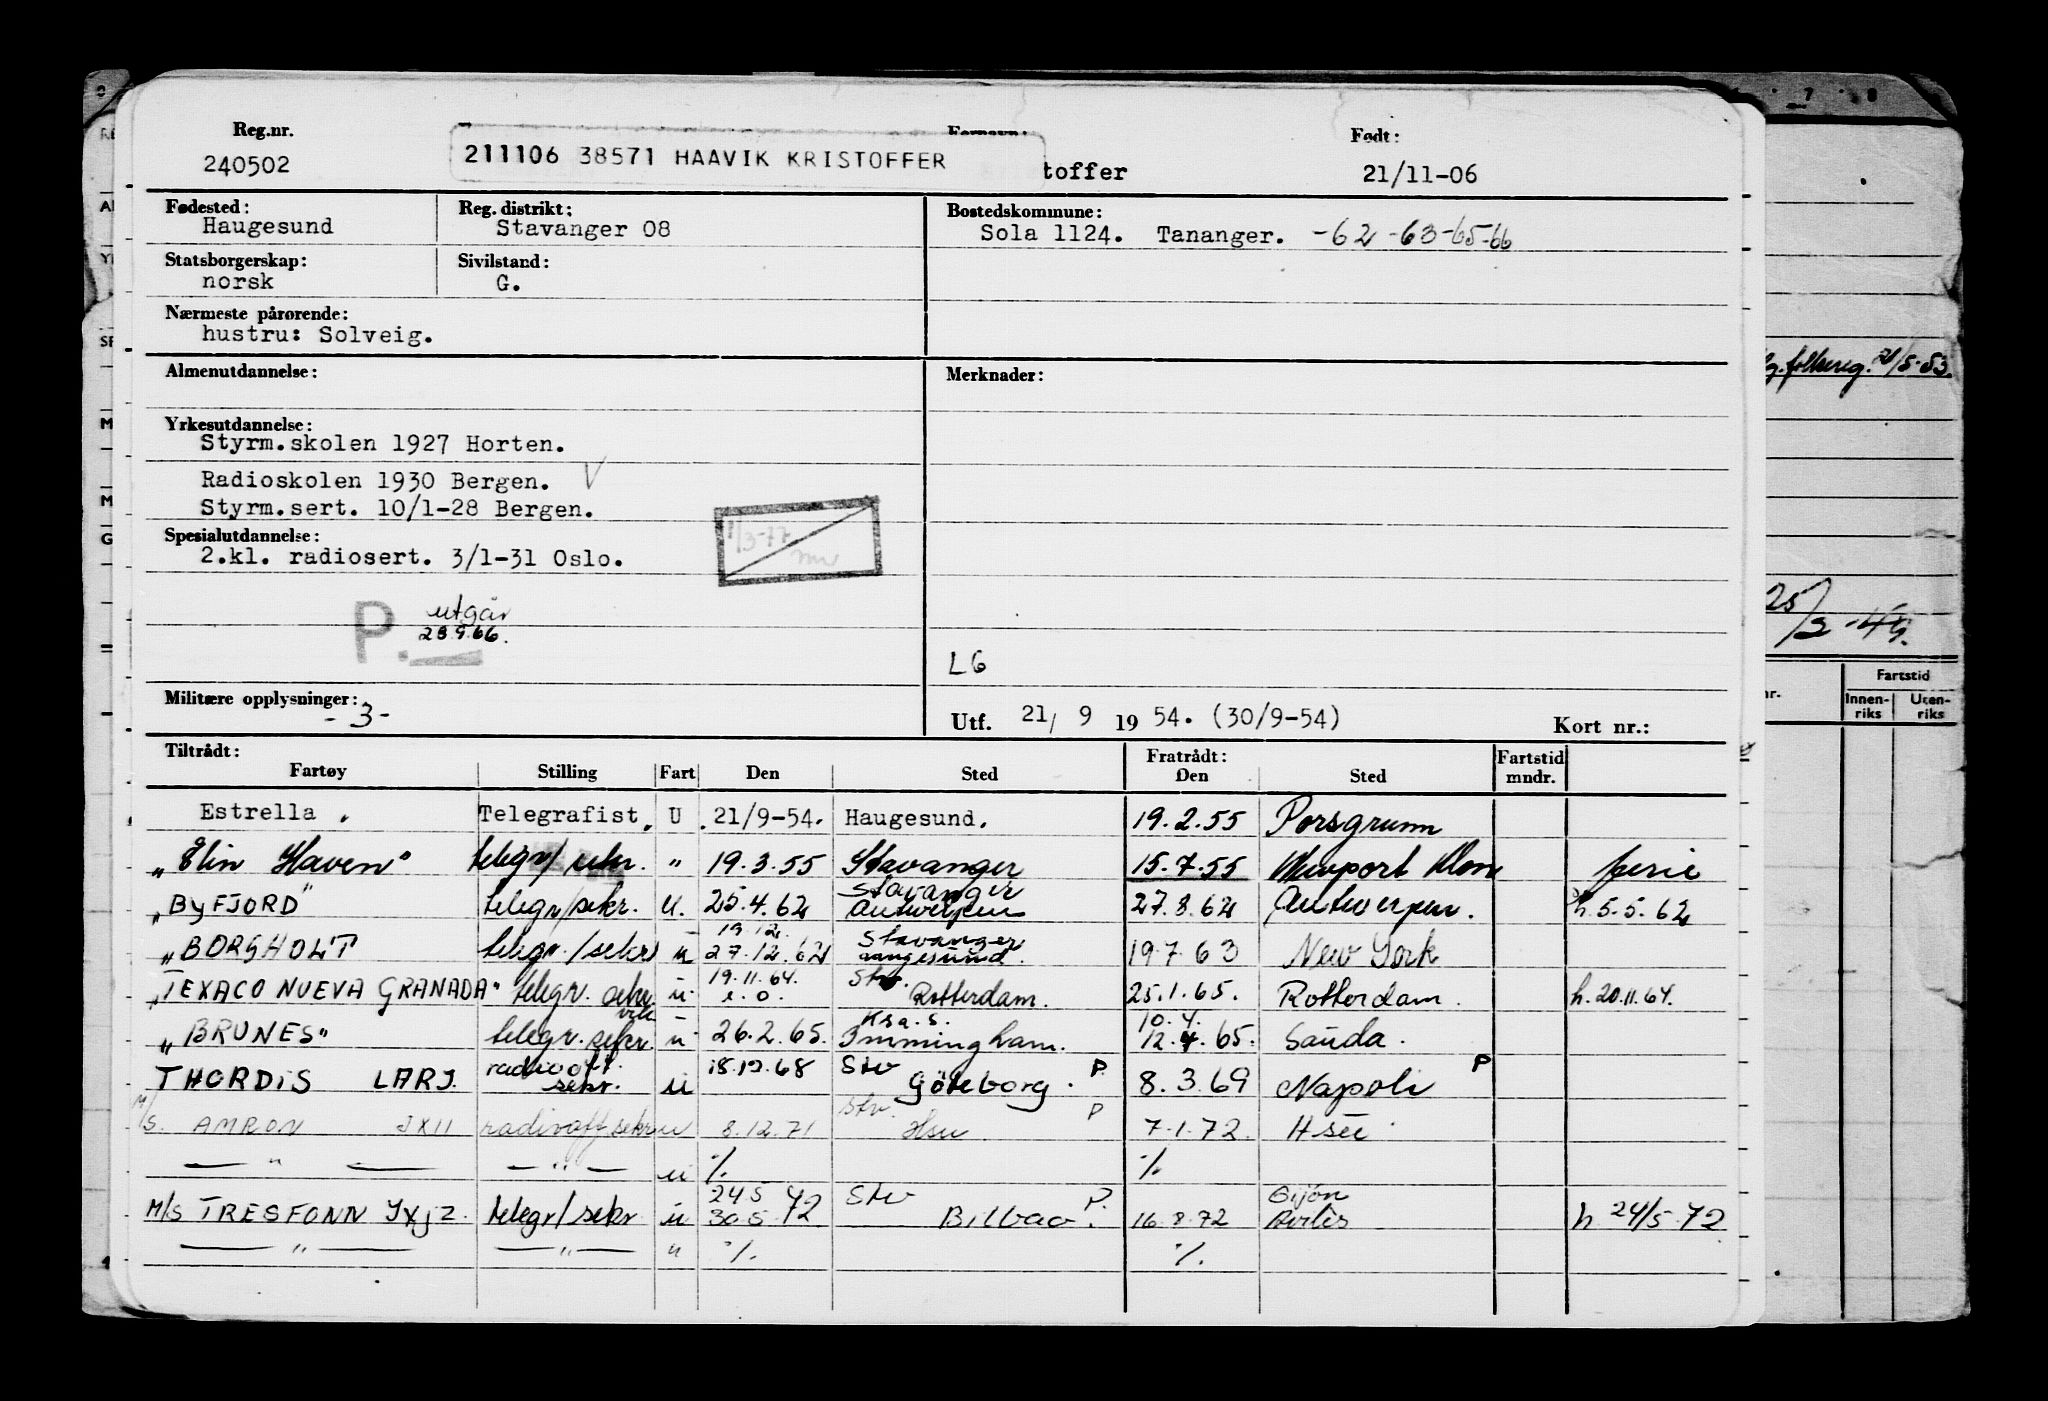 Reg.nr. Fornavn: Født:
240502 211106 38571 HAAVIK KRISTOFFER toffer 21/11-06
Fødested: Reg. distrikt: Bostedskommune:
Haugesund Stavanger 08 Sola 1124. Tananger. -62-63-65-66
Statsborgerskap: Sivilstand:
norsk G.
Nærmeste pårørende:
hustru: Solveig.
Almenutdannelse: Merknader:
Yrkesutdannelse:
Styrm.skolen 1927 Horten.
Radioskolen 1930 Bergen. V
Styrm.sert. 10/1-28 Bergen.
Spesialutdannelse:
2.kl. radiosert. 3/1-31 Oslo.
1/3-77
P. utgår
28.9.66.
L6
Militære opplysninger:
-3-
Utf. 21/ 9 19 54. (30/9-54) Kort nr.:
Tiltrådt: Fratrådt: Fartstid
Fartøy Stilling Fart Den Sted Den Sted mndr.
Estrella. Telegrafist. U .21/9-54. Haugesund. 19.2.55 Porsgrunn
"Elin Haven" telegr/sekr. " 19.3.55 Stavanger 15.7.55 Newport Mon ferie
Stavanger
"BYFJORD" telegr/sekr. u. 25.4.62 Antwerpen 27.8.62 Antwerpen. h. 5.5.62
19.12. Stavanger
"BORGHOLT telegr./sekr u 27.12.62 Haugesund. 19.7.63 New York
19.11.64. Stv.
"TEXACO NUEVA GRANADA" telegr. sekr. u e.o. Rotterdam. 25.1.65. Rotterdam. h. 20.11.64.
vik Krs.S. 10.4.
"BRUNES" telegr. sekr. u 26.2.65. Immingham. 12.4.65. Sauda.
radiooff. 18.12.68 Stv P. P
THORDIS LARJ. sekr. u Göteborg. 8.3.69 Napoli
M/ Stv. P
S. AMRON JXII radiooff sekr u 8.12.71 Hsu 7.1.72.
— " — — " — u %. %.
24.5 Stv P. Gijón
M/S TRESFONN JXJZ. telegr/sekr u 30.5.72 Bilbao. 16.8.72 Aviles h 24/5.72
— " — — " — " %. %.
g. folkereg. 21/5-53.
25/3-49.
Fartstid
nr. Innen-riks Uten-riks